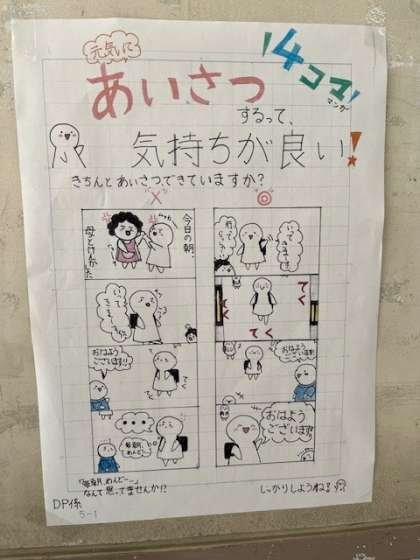 元気いて
あいさつ
するって、
4コマ!
マンガー
気持ちが良い!
きちんとあいさつできていますか?
×
◎
今日の朝、
母とけんかした
いってきまーす
行ってらっしゃい
いってきます!
てく
てく
てく
てく
おはようございます!!
おはようございます!
・・・
毎朝、めんどー…
おはようございます!!
「毎朝、めんどー…」
なんて思ってませんか!?
しっかりしようね!
DP係
5-1